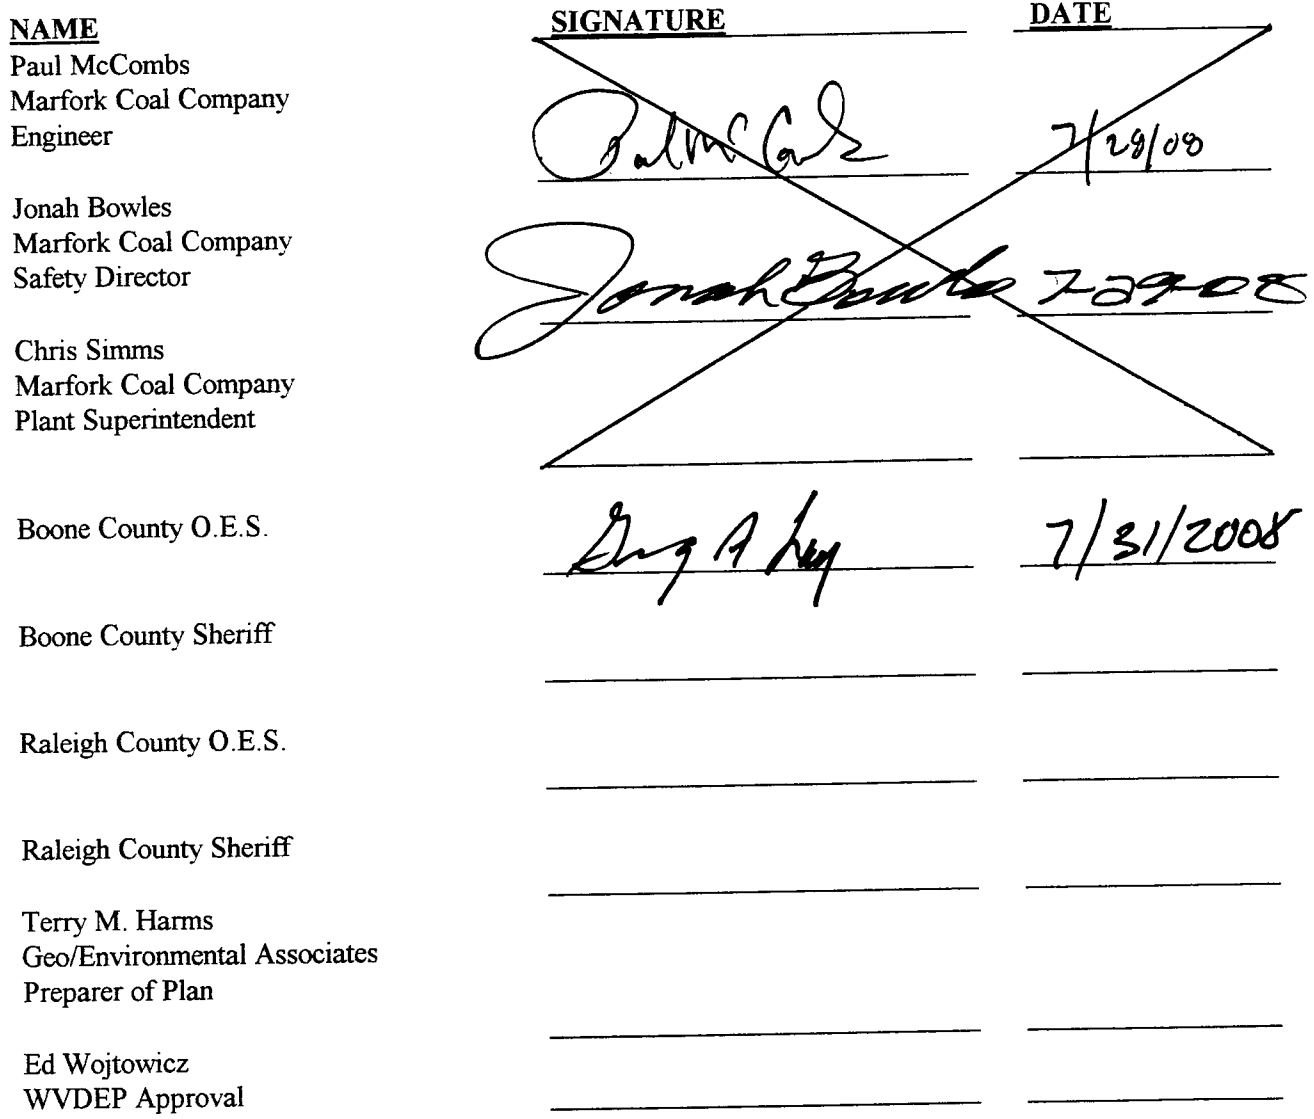 NAME SIGNATURE DATE
Paul McCombs
Marfork Coal Company
Engineer Paul McCombs 7/28/08
Jonah Bowles
Marfork Coal Company
Safety Director Jonah Bowles 7-29-08
Chris Simms
Marfork Coal Company
Plant Superintendent
Boone County O.E.S. Greg A Lay 7/31/2008
Boone County Sheriff
Raleigh County O.E.S.
Raleigh County Sheriff
Terry M. Harms
Geo/Environmental Associates
Preparer of Plan
Ed Wojtowicz
WVDEP Approval